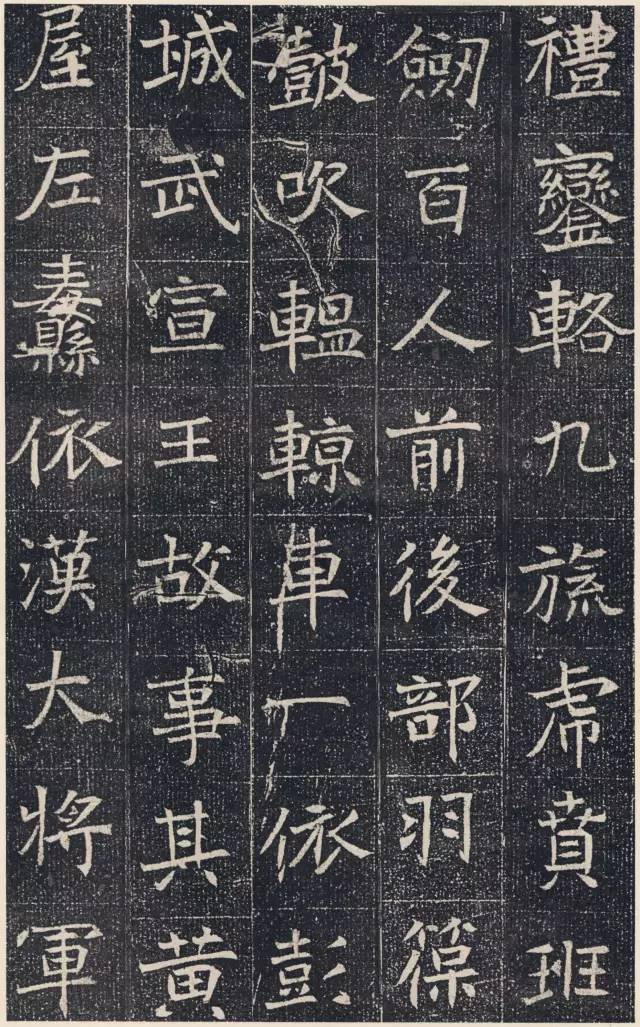 禮鑾輅九旒虎賁班
劒百人前後部羽葆
鼓吹轀輬車一依彭
城武宣王故事其黄
屋左纛依漢大將軍